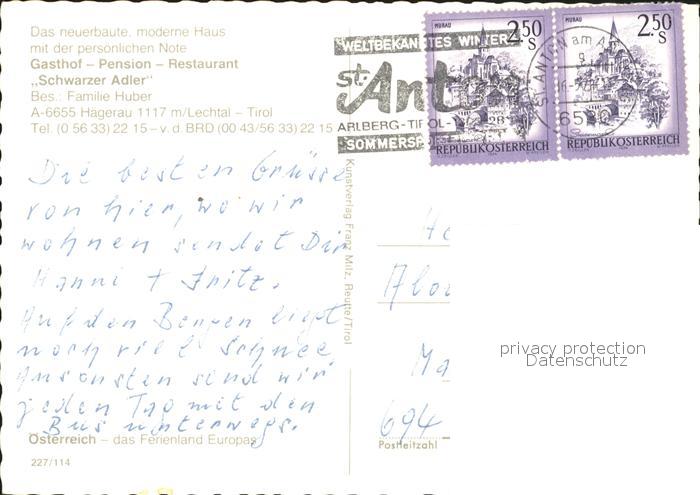 Das neuerbaute, moderne Haus
mit der persönlichen Note
Gasthof – Pension – Restaurant
„Schwarzer Adler“
Bes.: Familie Huber
A-6655 Hägerau 1117 m/Lechtal – Tirol
Tel. (0 56 33) 22 15 – v. d. BRD (00 43/56 33) 22 15
WELTBEKANNTES WINTER
St. Anton
ARLBERG-TIROL-
SOMMERSPO
ST. ANTON am A
6580
MURAU
2.50
S
REPUBLIK ÖSTERREICH
MURAU
2.50
S
REPUBLIK ÖSTERREICH
Die besten Grüsse
von hier, wo wir
wohnen sendet Dir
Hanni + Fritz.
Auf den Bergen liegt
noch viel Schnee
Ansonsten sind wir
jeden Tag mit den
Bus unterwegs.
Österreich – das Ferienland Europas
227/114
Kunstverlag Franz Milz, Reutte/Tirol
He
Ma
694
Postleitzahl
privacy protection
Datenschutz